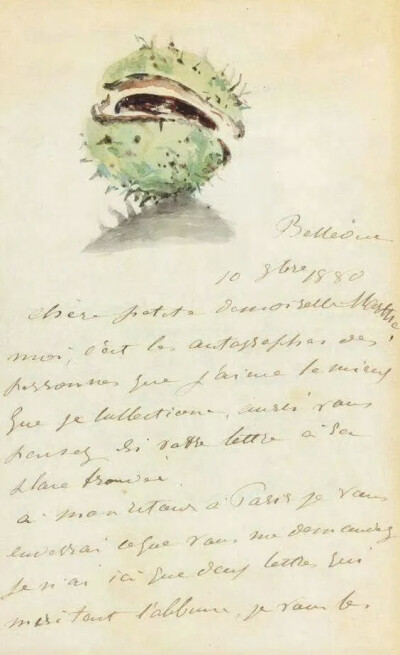 Bellevue
10 9bre 1880
chère petite demoiselle Marthe
moi, c'est les autographes des
personnes que j'aime le mieux
que je collectionne, aussi vous
pensez si votre lettre a sa
place trouvée.
a mon retour à Paris je vous
enverrai ce que vous me demandez
je n'ai ici que deux lettres qui
méritent l'album, je vous les